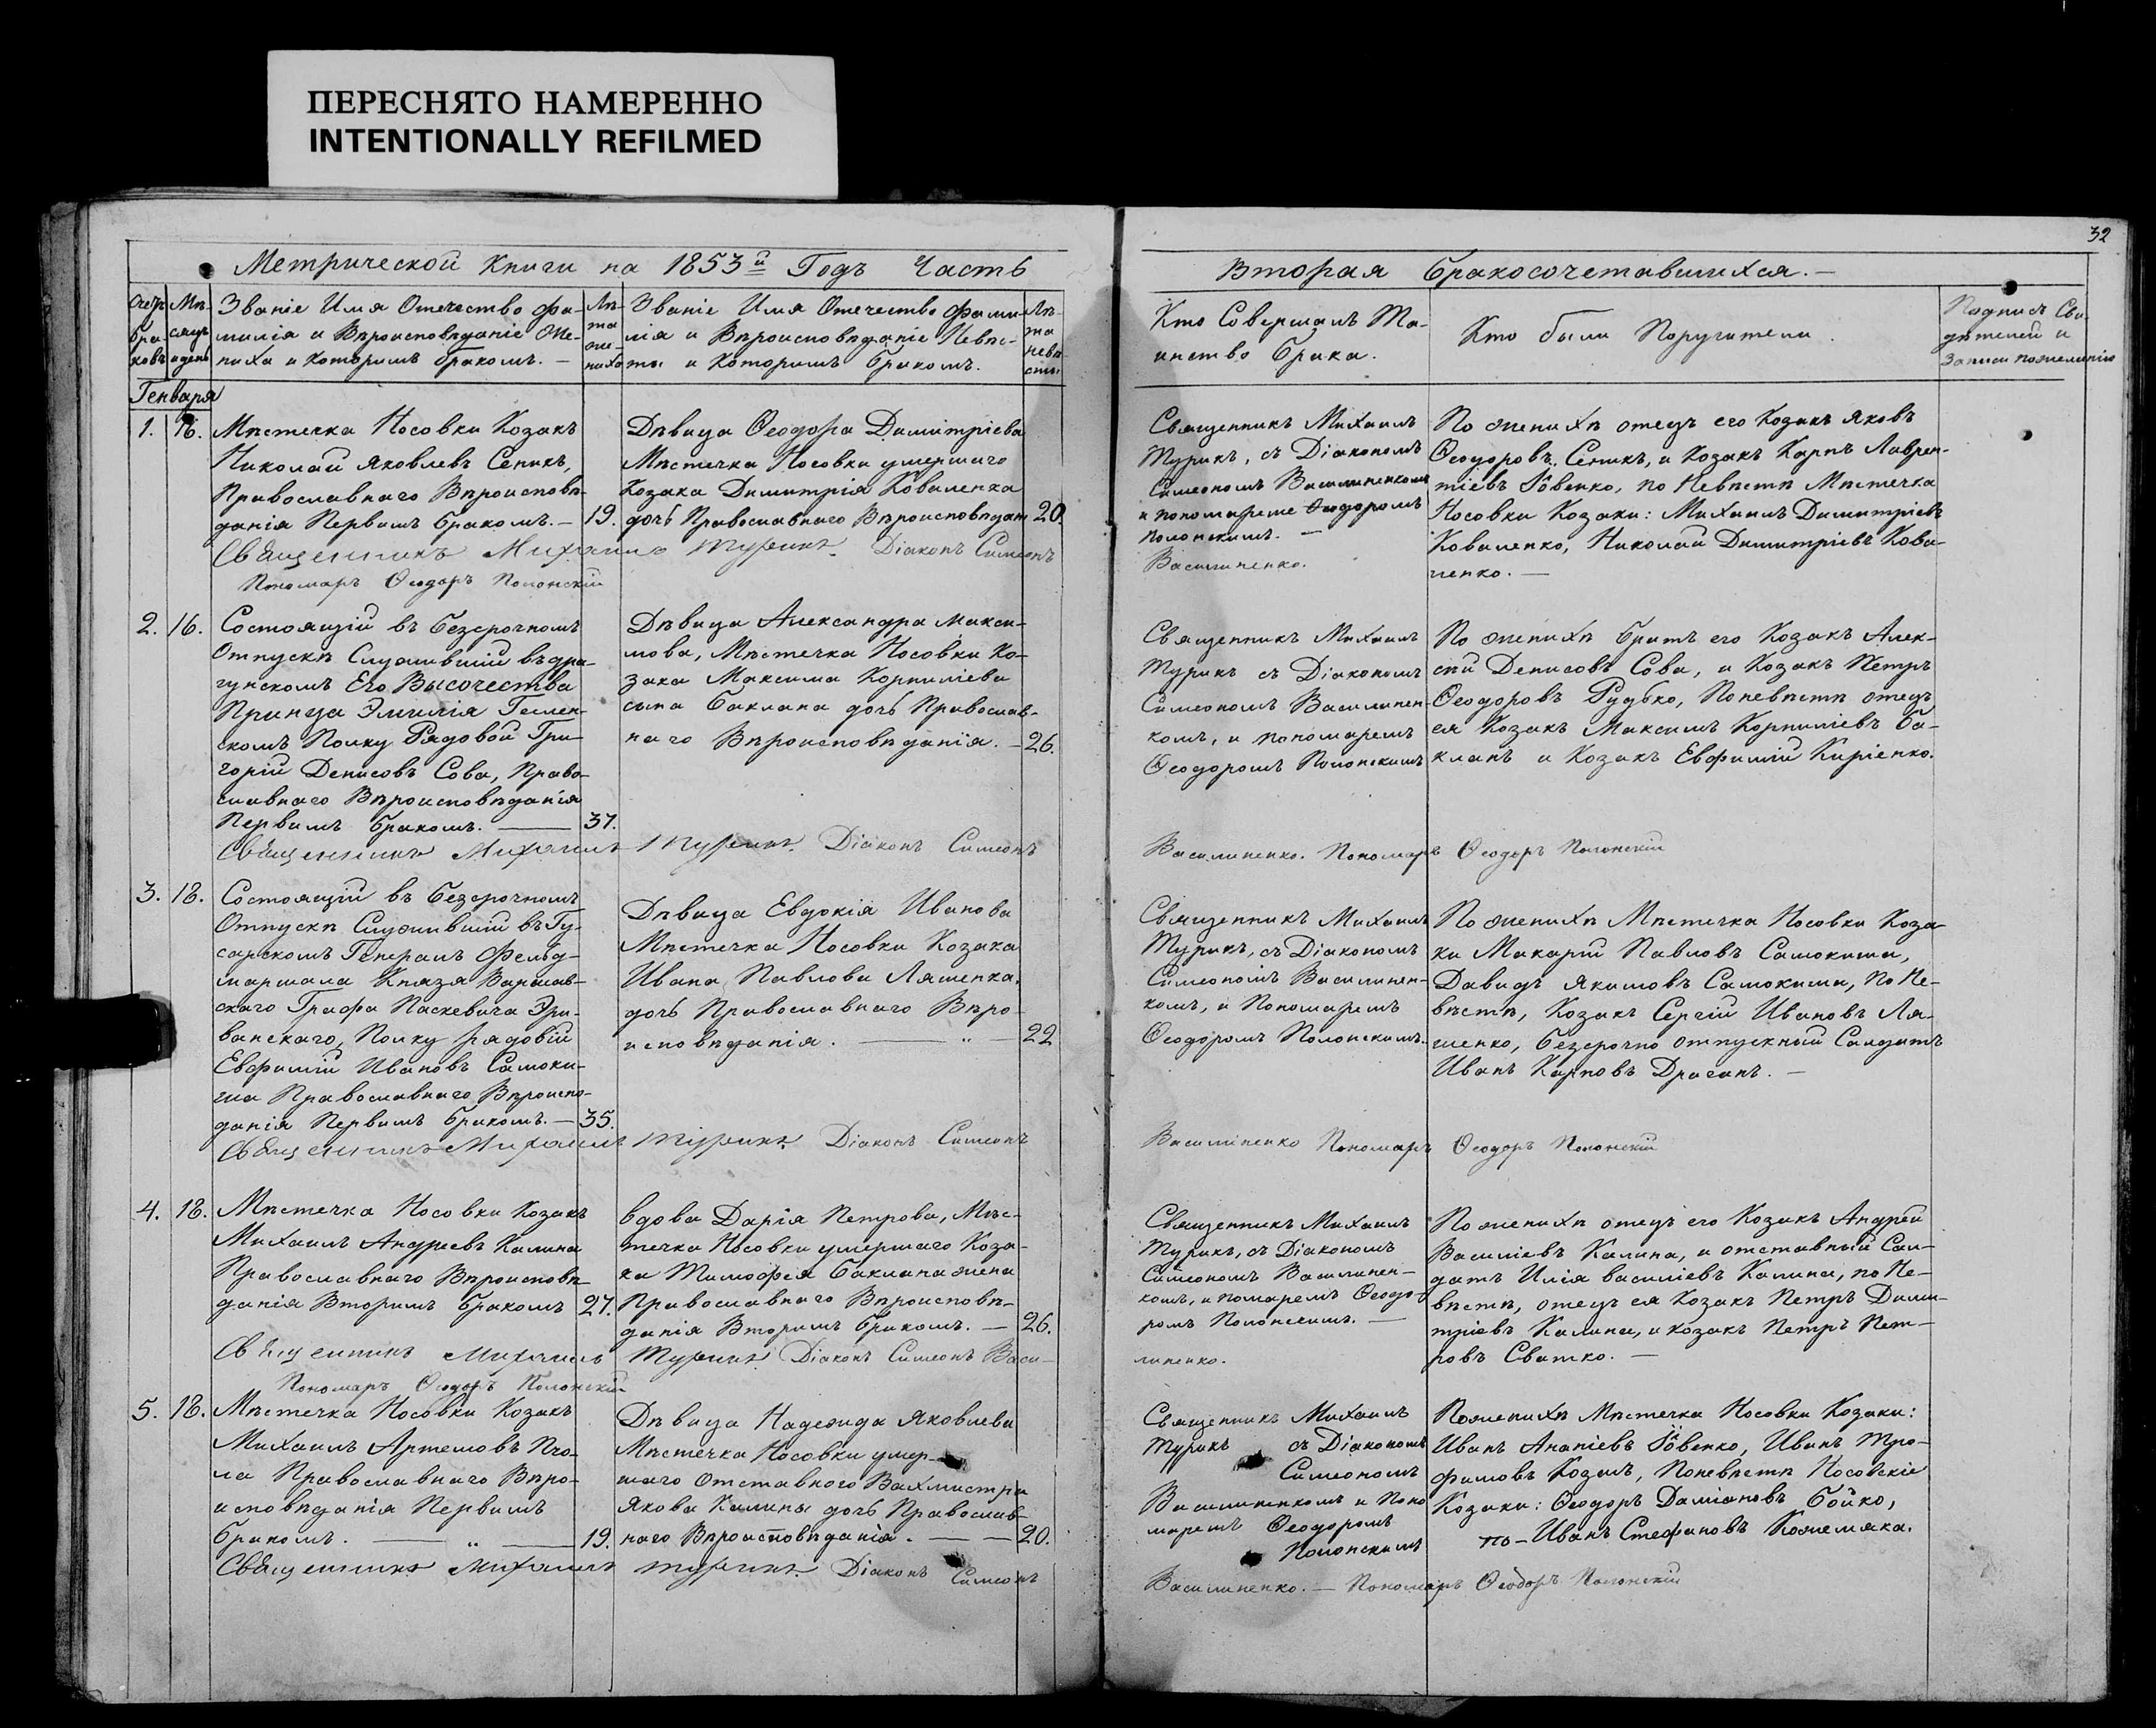 ПЕРЕСНЯТО НАМЕРЕННО
INTENTIONALLY REFILMED
32
Метрической Книги на 1853й Годъ Часть
Вторая бракосочетавшихся. —
Очер. бра-ковъ
Мѣ-сяцъ и день
Званіе Имя Отечество фа-
милія и Вѣроисповѣданіе Же-
ниха и Которимъ бракомъ. —
Лѣ-та же-ниха
Званіе Имя Отечество фами-
лія и Вѣроисповѣданіе Невѣс-
ты и Которимъ бракомъ.
Лѣ-та невѣ-сты
Кто Совершалъ Та-
инство брака.
Кто были Поручители.
Подпись Сви-
дѣтелей и
Записи по желанію
Генваря
1. 16. Мѣстечка Носовки Козакъ
Николай Яковлевъ Сепикъ,
Православнаго Вѣроисповѣ-
данія Первимъ бракомъ. — 19.
Дѣвица Ѳеодора Димитріева
Мѣстечка Носовки умершаго
Козака Димитрія Коваленка
дочь Православнаго Вѣроисповѣдан 20
Священникъ Михаилъ
Турикъ, съ Діакономъ
Симеономъ Василиненкомъ
и пономареме Ѳеодоромъ
Полонскимъ. —
По женихѣ отецъ его Козакъ Яковъ
Ѳеодоровъ Сепикъ, и Козакъ Карпъ Лаврен-
тіевъ Йовенко, по Невѣстѣ Мѣстечка
Носовки Козаки: Михаилъ Димитріевъ
Коваленко, Николай Димитріевъ Кова-
ленко. —
Священникъ Михаилъ Турикъ. Діаконъ Симеонъ
Василиненко.
Пономарь Ѳеодоръ Полонскій
2. 16. Состоящій въ безсрочномъ
Отпускѣ Служившій въ дра-
гунскомъ Его Высочества
Принца Эмилія Гессен-
скомъ Полку Рядовой Гри-
горій Денисовъ Сова, Право-
славнаго Вѣроисповѣданія
Первимъ бракомъ. — 37.
Дѣвица Александра Макси-
мова, Мѣстечка Носовки Ко-
зака Максима Корниліева
сына Баклана дочь Православ-
наго Вѣроисповѣданія. — 26.
Священникъ Михаилъ
Турикъ съ Діакономъ
Симеономъ Василинен-
комъ, и пономаремъ
Ѳеодоромъ Полонскимъ
По женихѣ братъ его Козакъ Алек-
сѣй Денисовъ Сова, и Козакъ Петръ
Ѳеодоровъ Рудько, По невѣстѣ отецъ
ея Козакъ Максимъ Корниліевъ Ба-
кланъ и Козакъ Евфимій Киріенко.
Священникъ Михаилъ Турикъ. Діаконъ Симеонъ
Василиненко. Пономарь Ѳеодоръ Полонскій
3. 18. Состоящій въ безсрочномъ
Отпускѣ Служившій въ Гу-
сарскомъ Генералъ Фельд-
маршала Князя Варшав-
скаго Графа Паскевича Эри-
ванскаго, Полку рядовій
Евфимій Ивановъ Самоки-
ша Православнаго Вѣроиспо-
данія Первимъ бракомъ. — 35.
Дѣвица Евдокія Иванова
Мѣстечка Носовки Козака
Ивана Павлова Ляшенка.
дочь Православнаго Вѣро-
исповѣданія. — „ — 22
Священникъ Михаилъ
Турикъ, съ Діакономъ
Симеономъ Василинен-
комъ, и Пономаремъ
Ѳеодоромъ Полонскимъ.
По женихѣ Мѣстечка Носовки Коза-
ки Макарій Павловъ Самокиша,
Давидъ Якимовъ Самокиша, По Не-
вѣстѣ, Козакъ Сергій Ивановъ Ля-
шенко, безсрочно отпускный Салдатъ
Иванъ Карповъ Драганъ. —
Священникъ Михаилъ Турикъ. Діаконъ Симеонъ
Василиненко Пономарь Ѳеодоръ Полонскій
4. 18. Мѣстечка Носовки Козакъ
Михаилъ Андреевъ Калина
Православнаго Вѣроисповѣ-
данія Вторимъ бракомъ 27.
Вдова Дарія Петрова, Мѣс-
течка Носовки умершаго Коза-
ка Тимофея Баклана жена
Православнаго Вѣроисповѣ-
данія Вторимъ бракомъ. — 26.
Священникъ Михаилъ
Турикъ, съ Діакономъ
Симеономъ Василинен-
комъ, и помаремъ Ѳеодо-
ромъ Полонскимъ. —
По женихѣ отецъ его Козакъ Андрей
Василіевъ Калина, и отставный Сал-
датъ Илія василіевъ Калина, по Не-
вѣстѣ, отецъ ея Козакъ Петръ Дими-
тріевъ Калина, и козакъ Петръ Пет-
ровъ Сватко. —
Священникъ Михаилъ Турикъ Діаконъ Симеонъ Васи-
линенко.
Пономарь Ѳеодоръ Полонскій
5. 18. Мѣстечка Носовки Козакъ
Михаилъ Артемовъ Пчо-
ла Православнаго Вѣро-
исповѣданія Первимъ
бракомъ. — „ — 19.
Дѣвица Надежда Яковлева
Мѣстечка Носовки умер-
шаго Отставного Вахмистра
Якова Калины дочь Православ-
наго Вѣроисповѣданія. — — 20.
Священникъ Михаилъ
Турикъ съ Діакономъ
Симеономъ
Василиненкомъ и Поно
маремъ Ѳеодоромъ
Полонскимъ
По женихѣ Мѣстечка Носовки Козаки:
Иванъ Ананіевъ Йовенко, Иванъ Тро-
фимовъ Козелъ, По невѣстѣ Носовскіе
Козаки: Ѳеодоръ Даміановъ Бойко,
Иванъ Стефановъ Кожемяка.
Священникъ Михаилъ Турикъ. Діаконъ Симеонъ
Василиненко. — Пономарь Ѳеодоръ Полонскій